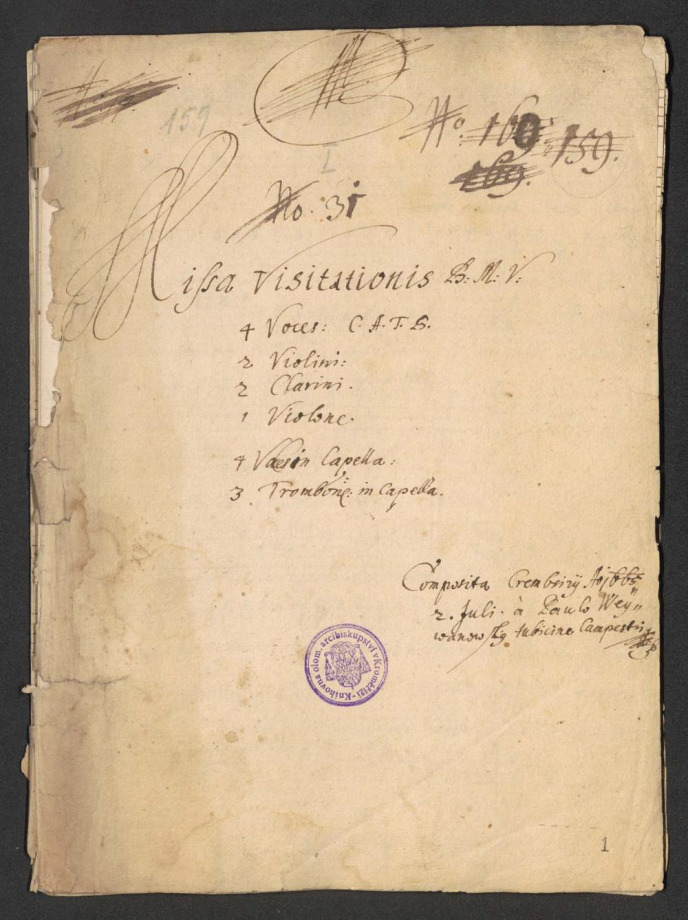 159
No. 169. 159.
169.
I
No. 31
Missa Visitationis B: M: V:
4 Voces: C. A. T. B.
2 Violini:
2 Clarini.
1 Violone.
4 Voces in Capella:
3 Tromboni: in Capella.
Composita Crembsirÿ
2. Juli. à Paulo Wey„
wanowskÿ tubicine Campestri
Knihovna olom. arcibiskupství v Kroměříži
1